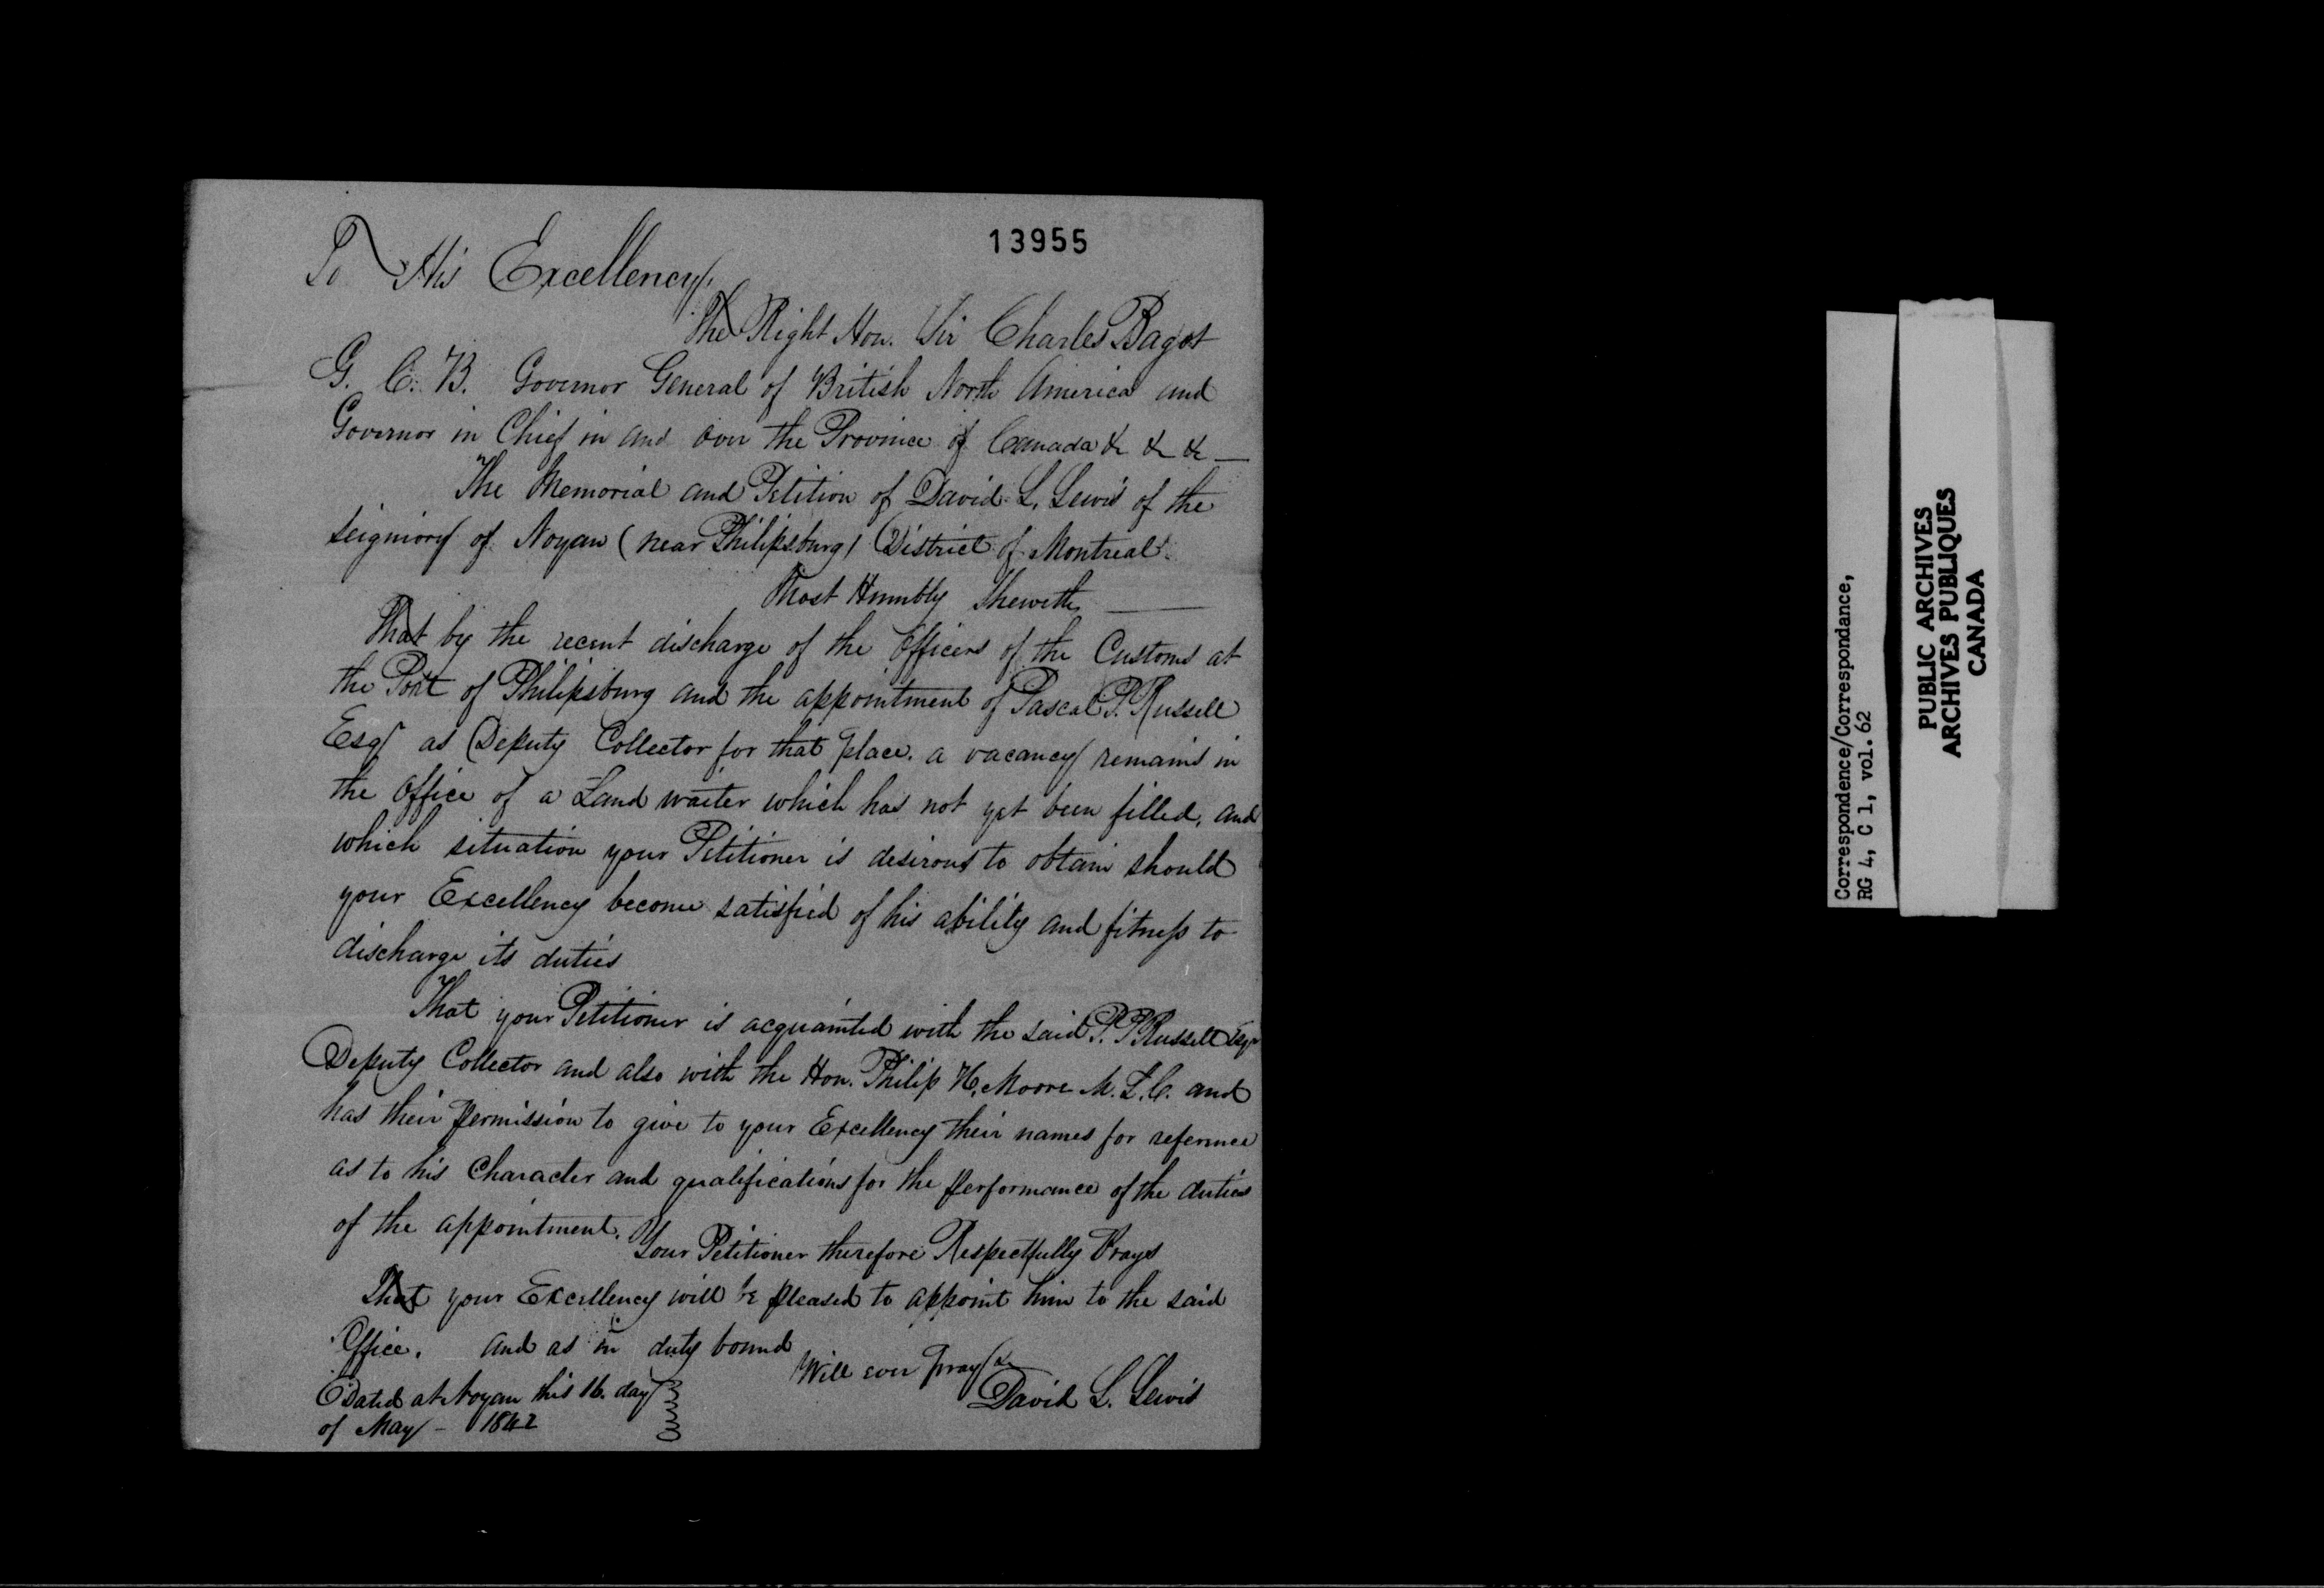 13955
To His Excellency,
The Right Hon. Sir Charles Bagot
G. C. B. Governor General of British North America and
Governor in Chief in and over the Province of Canada & & & —
The Memorial and Petition of David L. Lewis of the
Seigniory of Noyan (near Philipsburg) District of Montreal.
Most Humbly Sheweth —
That by the recent discharge of the Officers of the Customs at
the Port of Philipsburg and the appointment of Pascal P. Russell
Esqr as Deputy Collector for that place. a vacancy remains in
the Office of a Land waiter which has not yet been filled, and
which situation your Petitioner is desirous to obtain should
your Excellency become satisfied of his ability and fitness to
discharge its duties
That your Petitioner is acquainted with the said P. P. Russell Esqr
Deputy Collector and also with the Hon. Philip H. Moore M. L. C. and
has their permission to give to your Excellency their names for reference
as to his Character and qualifications for the performance of the duties
of the appointment.
Your Petitioner therefore Respectfully Prays
That your Excellency will be pleased to appoint him to the said
Office. and as in duty bound
Will ever pray &
Dated at Noyan this 16. day
of May - 1842
David L. Lewis
Correspondence/Correspondance,
RG 4, C 1, vol. 62
PUBLIC ARCHIVES
ARCHIVES PUBLIQUES
CANADA